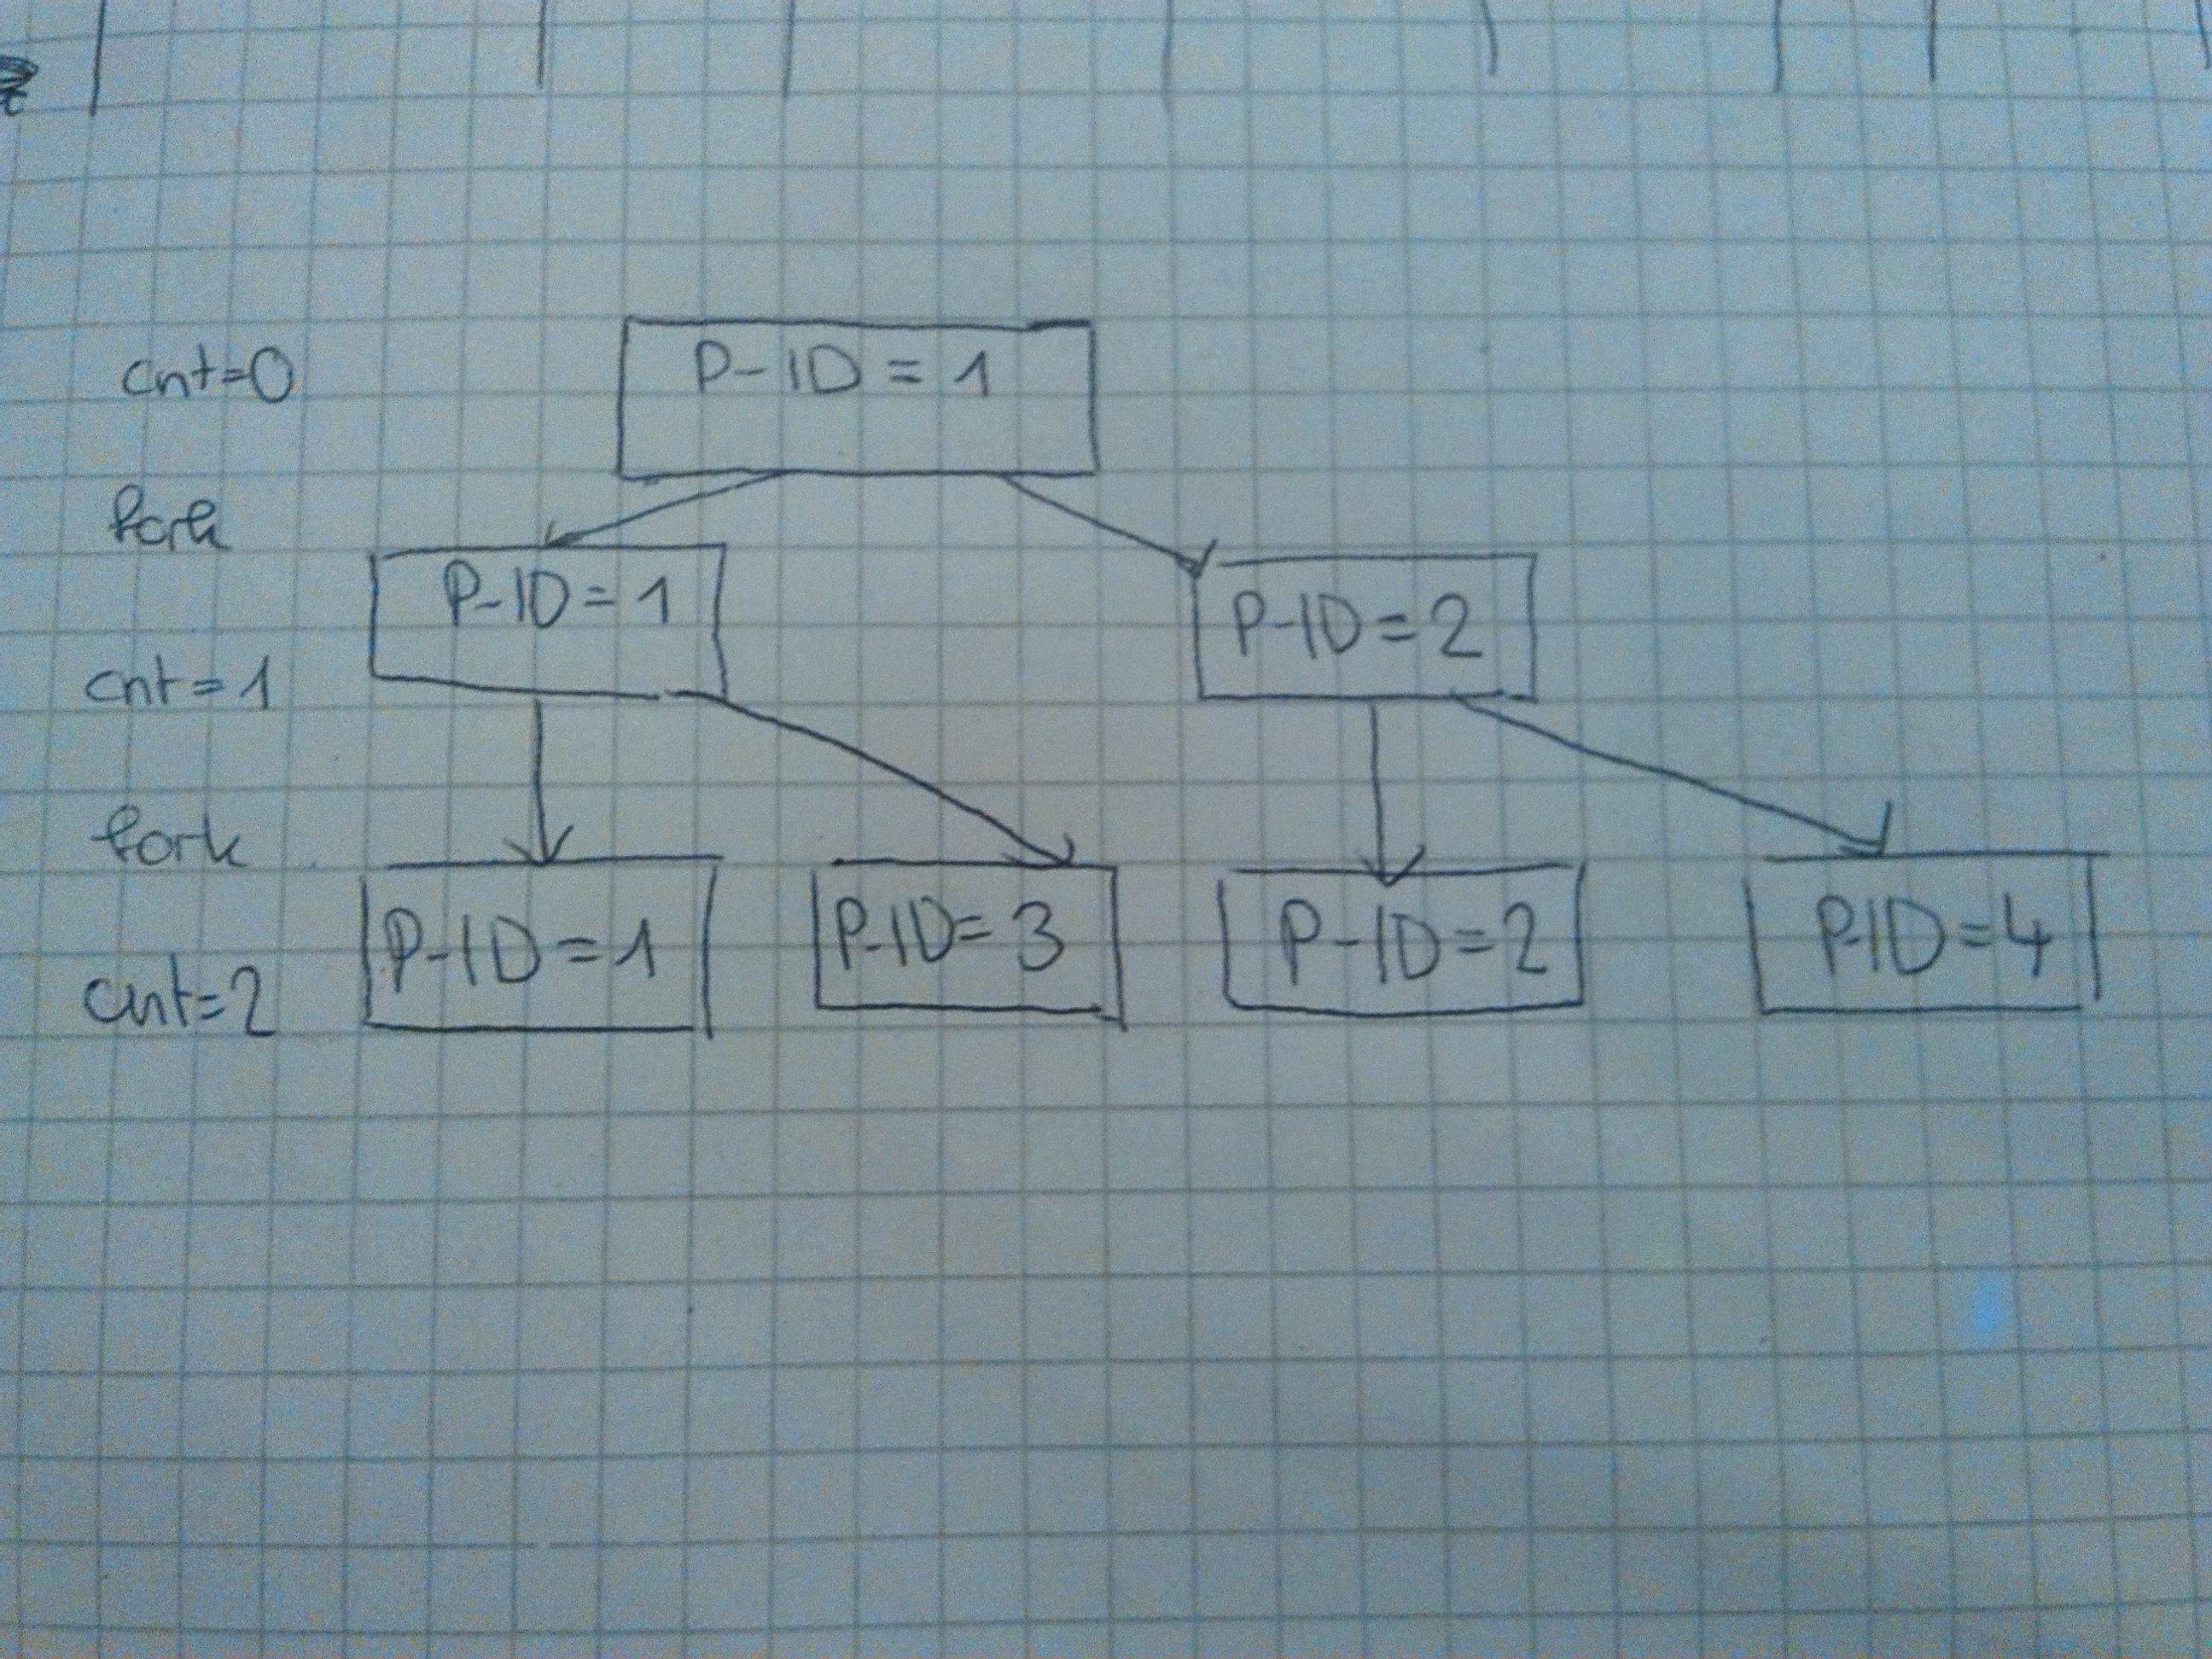 cnt=0 P-ID = 1
fork
P-ID=1 P-ID=2
cnt=1
fork
P-ID=1 P-ID=3 P-ID=2 P-ID=4
cnt=2